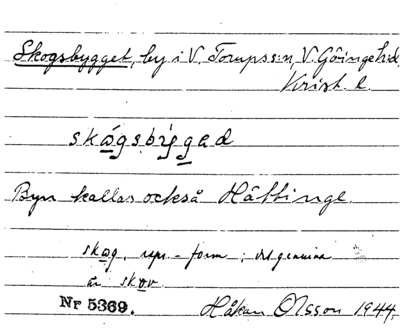 Skogsbygget, by i V. Torups:n, V. Göingehd,
Krist. l.
skǻgsbýgad
Byn kallas också Håttinge.
skog, repr. - form; det genuina
är skov
Nr 5369. Håkan Olsson 1944.